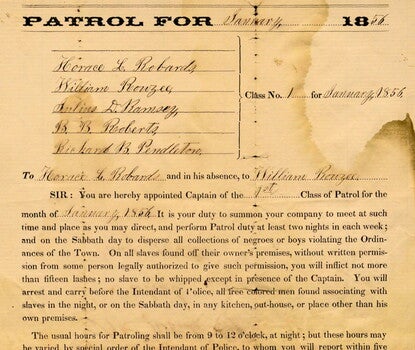 PATROL FOR January, 1856
Horace L. Robards
William Rouzee
Julius D. Ramsey
B. B. Roberts
Richard B. Pendleton,
Class No. 1 for January, 1856
To Horace L. Robards and in his absence, to William Rouzee
SIR: You are hereby appointed Captain of the 1st Class of Patrol for the
month of January, 1856. It is your duty to summon your company to meet at such
time and place as you may direct, and perform Patrol duty at least two nights in each week;
and on the Sabbath day to disperse all collections of negroes or boys violating the Ordin-
ances of the Town. On all slaves found off their owner's premises, without written permis-
sion from some person legally authorized to give such permission, you will inflict not more
than fifteen lashes; no slave to be whipped except in presence of the Captain. You will
arrest and carry before the Intendant of Police, all free colored men found associating with
slaves in the night, or on the Sabbath day, in any kitchen, out-house, or place other than his
own premises.
The usual hours for Patroling shall be from 9 to 12 o'clock, at night; but these hours may
be varied by special order of the Intendant of Police, to whom you will report within five